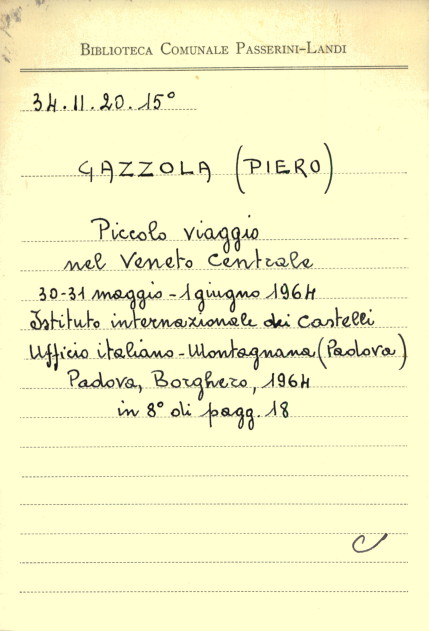 BIBLIOTECA COMUNALE PASSERINI-LANDI
34.II.20.15°
GAZZOLA (PIERO)
Piccolo viaggio
nel Veneto Centrale
30-31 maggio - 1 giugno 1964
Istituto internazionale dei Castelli
Ufficio italiano - Montagnana (Padova)
Padova, Borghero, 1964
in 8° di pagg. 18
C